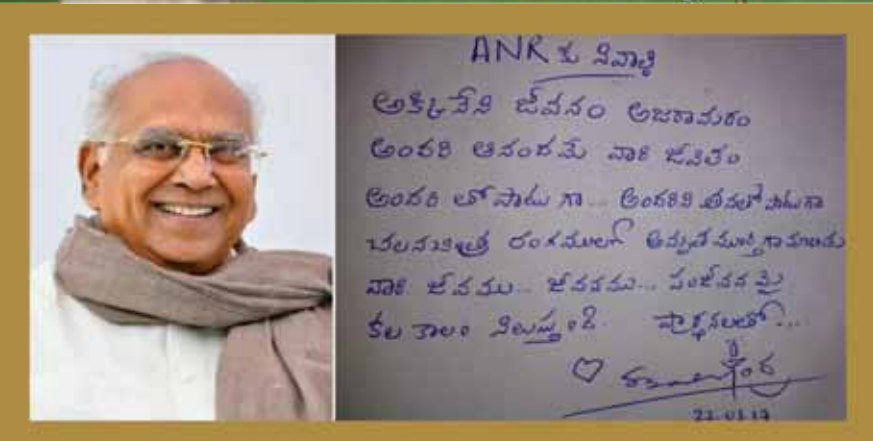 ANR కు నివాళి
అక్కినేని జీవనం అజరామరం
అందరి ఆనందమే వారి జీవితం
అందరి తో పాటు గా... అందరిని తనతో పాటుగా
చలనచిత్ర రంగములో
వారి జీవము... జీవనము... సంజీవన మై
కల కాలం నిలుస్తుంది. ప్రార్థనలతో...